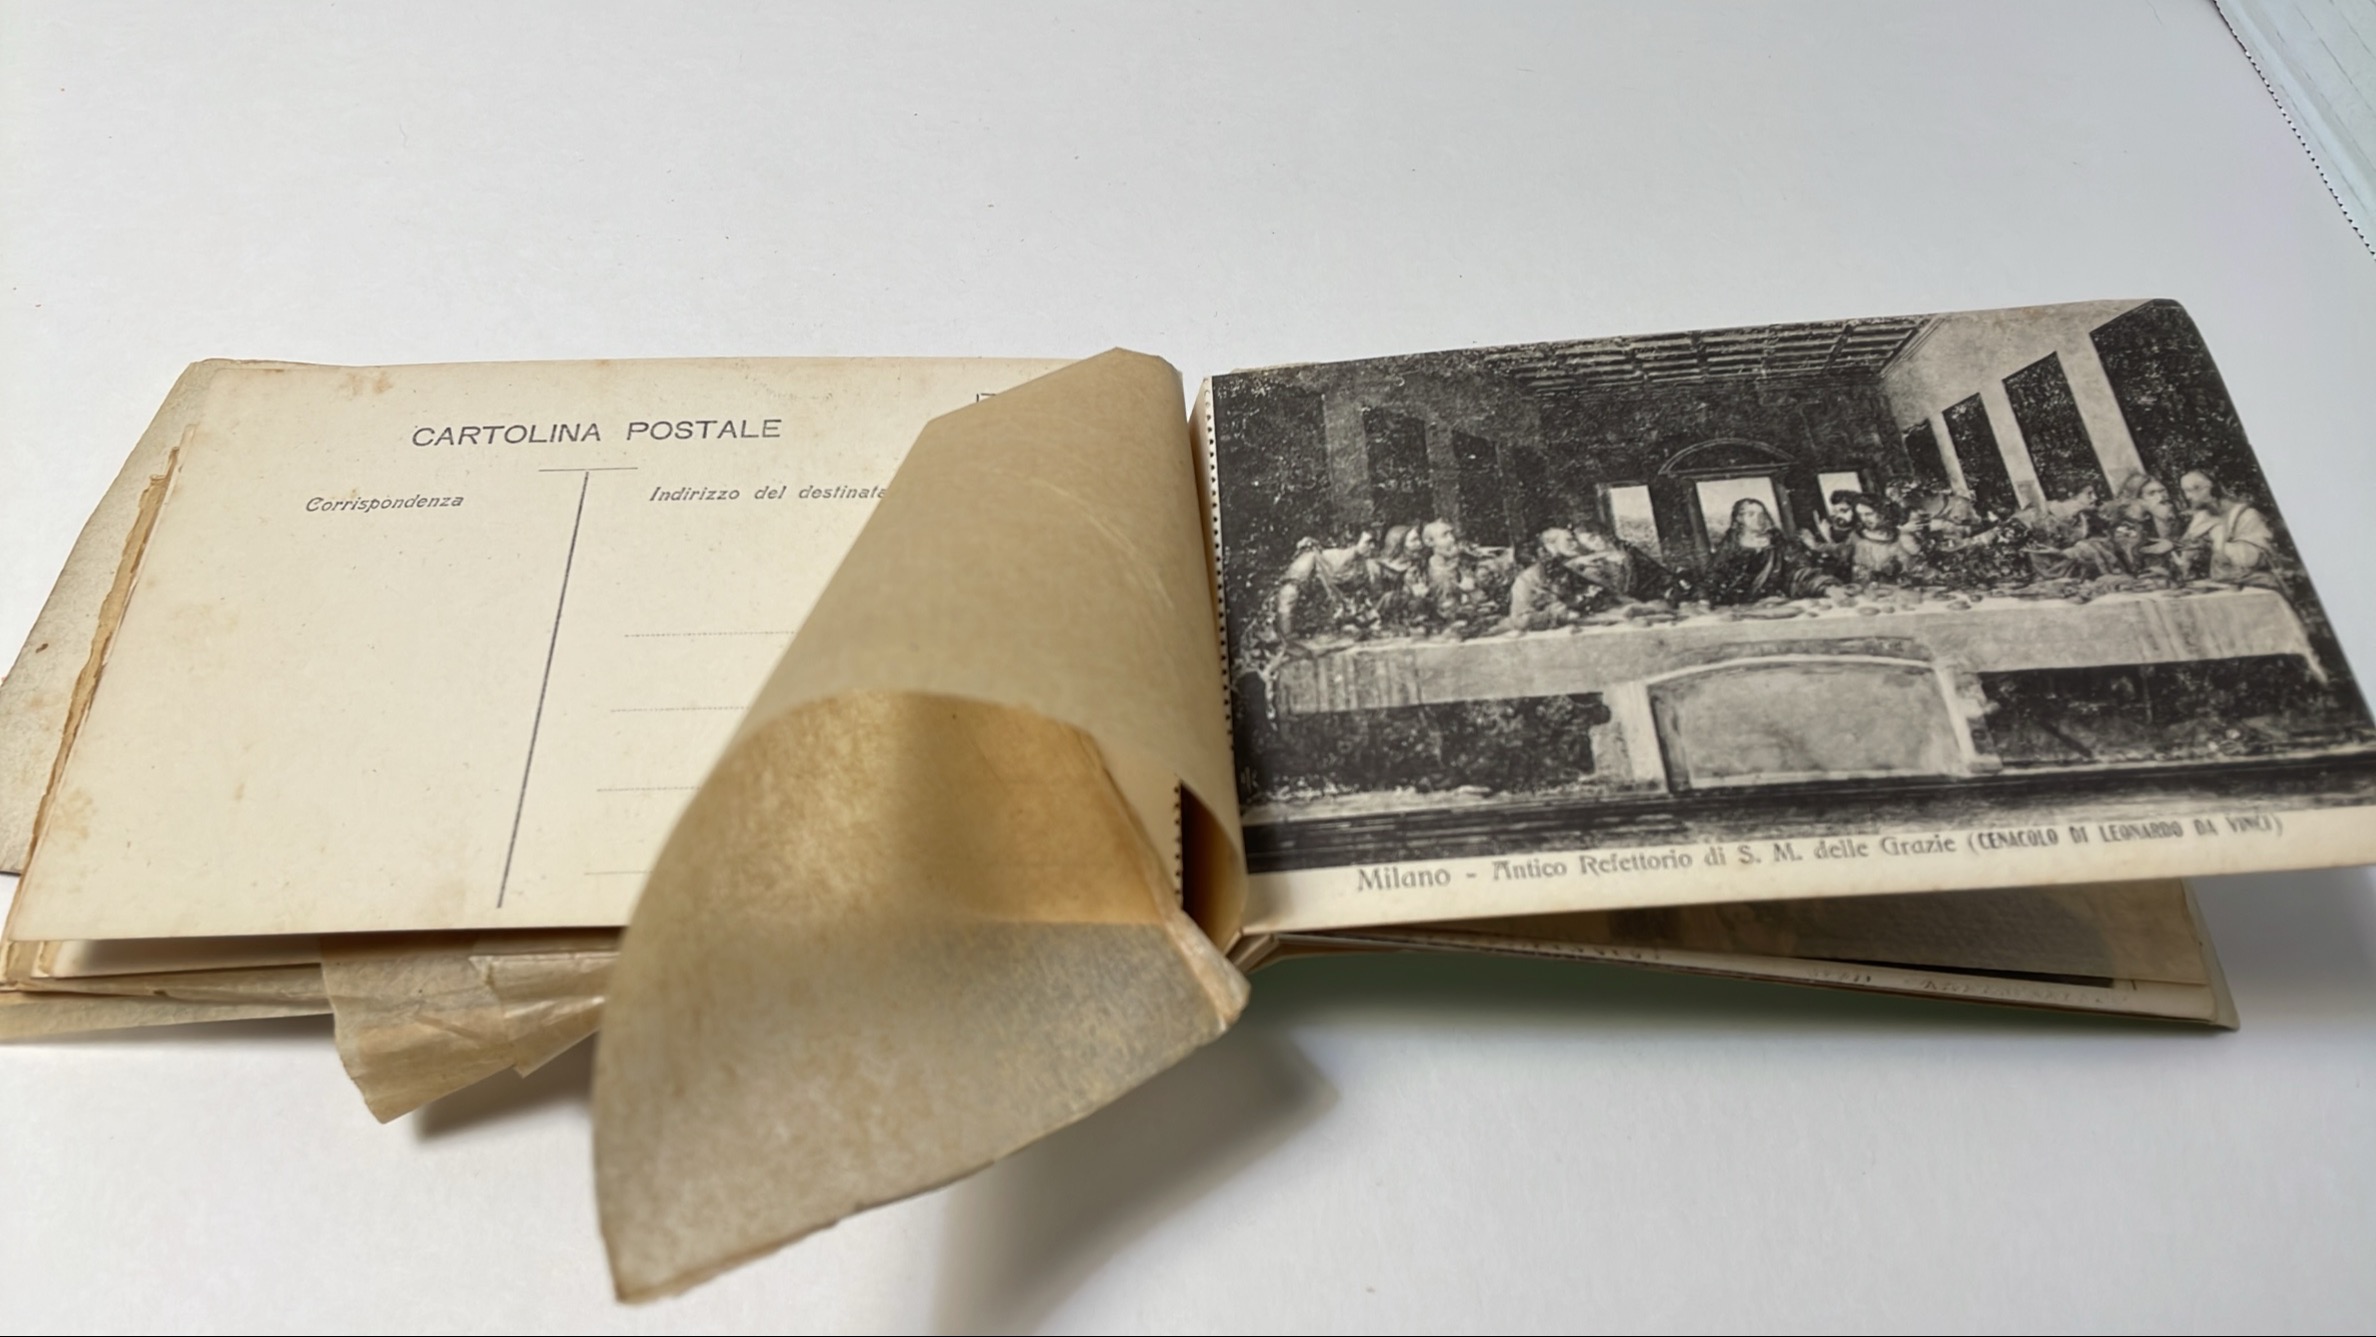 CARTOLINA POSTALE
Corrispondenza
Indirizzo del destinata
Milano - Antico Refettorio di S. M. delle Grazie (CENACOLO DI LEONARDO DA VINCI)